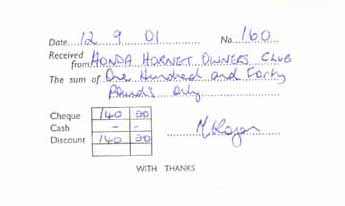 Date 12 9 01 No. 160
Received from HONDA HORNET OWNERS CLUB
The sum of One Hundred and Forty
Pounds only
Cheque 140 00
Cash - -
Discount 140 00
WITH THANKS